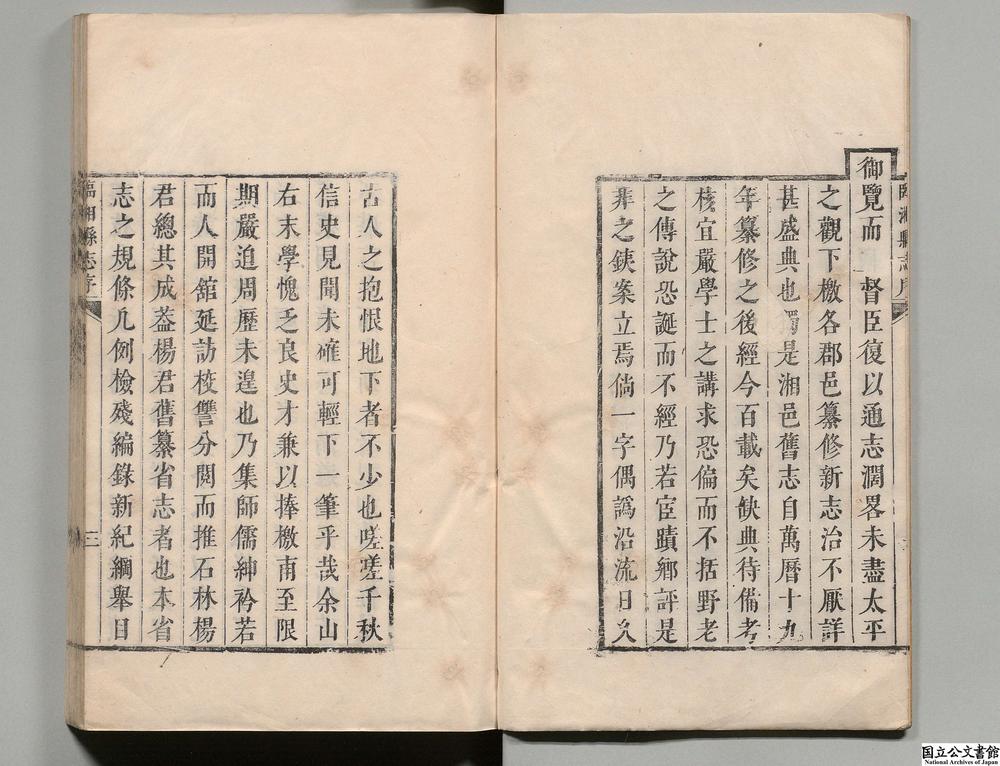 臨湘縣志序
御覽而　督臣復以通志濶畧未盡太平
之觀下檄各郡邑纂修新志治不厭詳
甚盛典也獨是湘邑舊志自萬曆十九
年纂修之後經今百載矣缺典待備考
核宜嚴學士之講求恐偏而不括野老
之傳說恐誕而不經乃若宦蹟鄉評是
非之鉄案立焉倘一字偶譌沿流日久
古人之抱恨地下者不少也嗟嗟千秋
信史見聞未確可輕下一筆乎哉余山
右末學愧乏良史才兼以捧檄甫至限
期嚴迫周歷未遑也乃集師儒紳衿若
而人開舘延訪校讐分閱而推石林楊
君總其成葢楊君舊纂省志者也本省
志之規條凡例檢殘編錄新紀綱舉目
臨湘縣志序
二
国立公文書館
National Archives of Japan